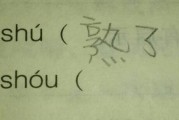 shú ( 熟了
shóu (